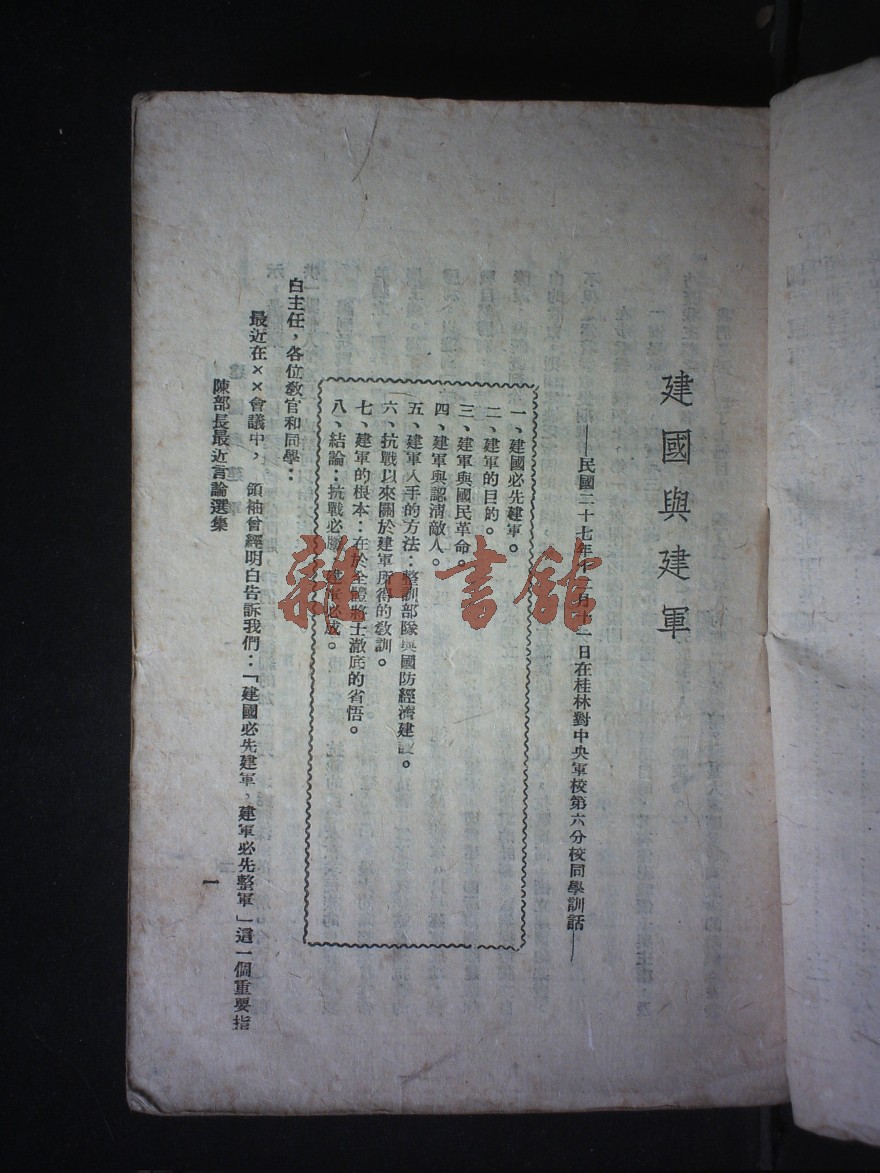 建國與建軍
——民國二十七年十二月十二日在桂林對中央軍校第六分校同學訓話——
一、建國必先建軍。
二、建軍的目的。
三、建軍與國民革命。
四、建軍與認清敵人。
五、建軍入手的方法：整訓部隊與國防經濟建設。
六、抗戰以來關於建軍所得的教訓。
七、建軍的根本：在於全體將士澈底的省悟。
八、結論：抗戰必勝，建軍必成。
白主任，各位教官和同學：
最近在××會議中，領袖曾經明白告訴我們：「建國必先建軍，建軍必先整軍」這一個重要指
陳部長最近言論選集
一
雜·書館